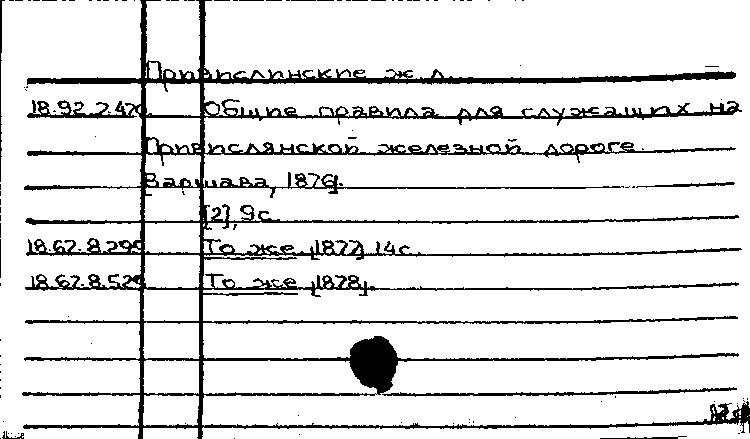 Привислинские ж. д.
18.92.2.470. Общие правила для служащих на
Привислянской железной дороге.
Варшава, 1876].
[2], 9 с.
18.67.8.299 То же [1877] 14 с.
18.67.8.529 То же [1878].